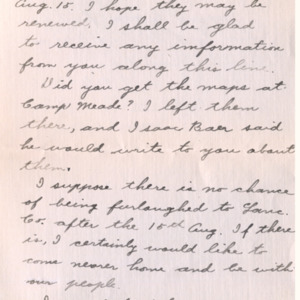 Aug. 15. I hope they may be
renewed. I shall be glad
to receive any imformation
from you along this line.
Did you get the maps at
Camp Meade? I left them
there, and Isaac Baer said
he would write to you about
them.
I suppose there is no chance
of being furloughed to Lanc.
Co. after the 15th Aug. If there
is, I certainly would like to
come nearer home and be with
our people.